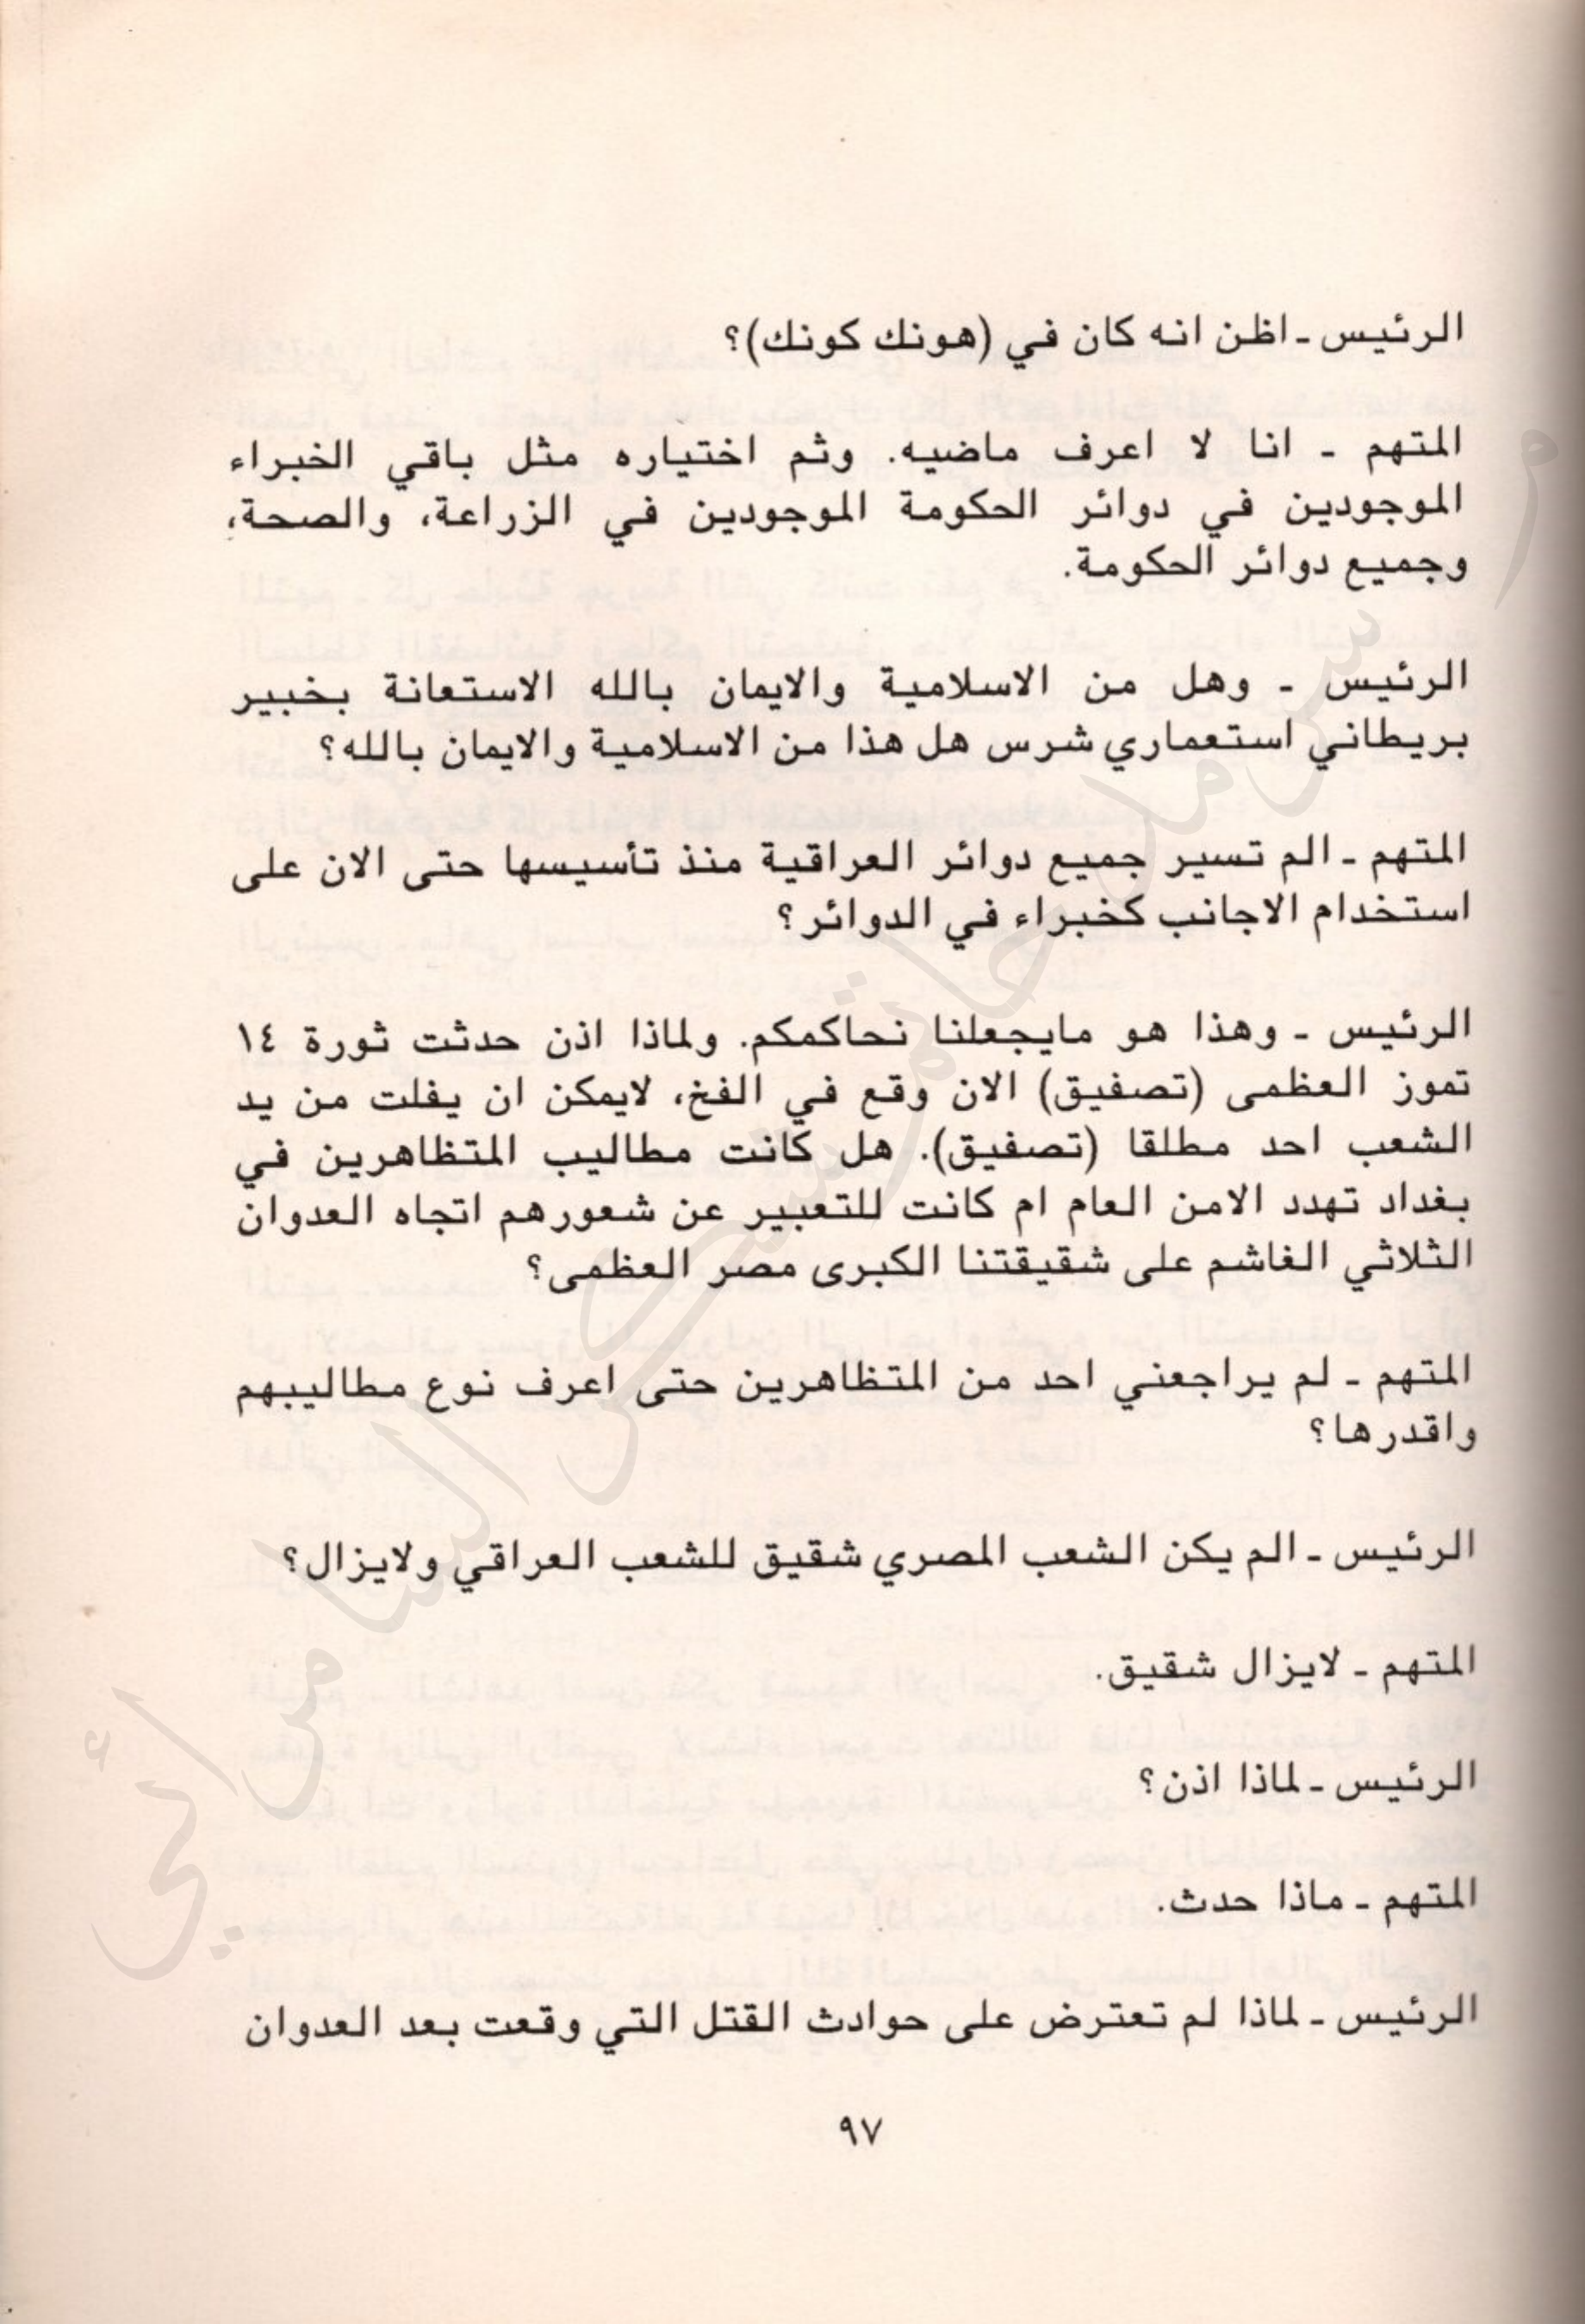 الرئيس ـ اظن انه كان في (هونك كونك)؟
المتهم ـ انا لا اعرف ماضيه. وثم اختياره مثل باقي الخبراء
الموجودين في دوائر الحكومة الموجودين في الزراعة، والصحة،
وجميع دوائر الحكومة.
الرئيس ـ وهل من الاسلامية والايمان بالله الاستعانة بخبير
بريطاني استعماري شرس هل هذا من الاسلامية والايمان بالله؟
المتهم ـ الم تسير جميع دوائر العراقية منذ تأسيسها حتى الان على
استخدام الاجانب كخبراء في الدوائر؟
الرئيس ـ وهذا هو مايجعلنا نحاكمكم. ولماذا اذن حدثت ثورة ١٤
تموز العظمى (تصفيق) الان وقع في الفخ، لايمكن ان يفلت من يد
الشعب احد مطلقا (تصفيق). هل كانت مطاليب المتظاهرين في
بغداد تهدد الامن العام ام كانت للتعبير عن شعورهم اتجاه العدوان
الثلاثي الغاشم على شقيقتنا الكبرى مصر العظمى؟
المتهم ـ لم يراجعني احد من المتظاهرين حتى اعرف نوع مطاليبهم
واقدرها؟
الرئيس ـ الم يكن الشعب المصري شقيق للشعب العراقي ولايزال؟
المتهم ـ لايزال شقيق.
الرئيس ـ لماذا اذن؟
المتهم ـ ماذا حدث.
الرئيس ـ لماذا لم تعترض على حوادث القتل التي وقعت بعد العدوان
٩٧